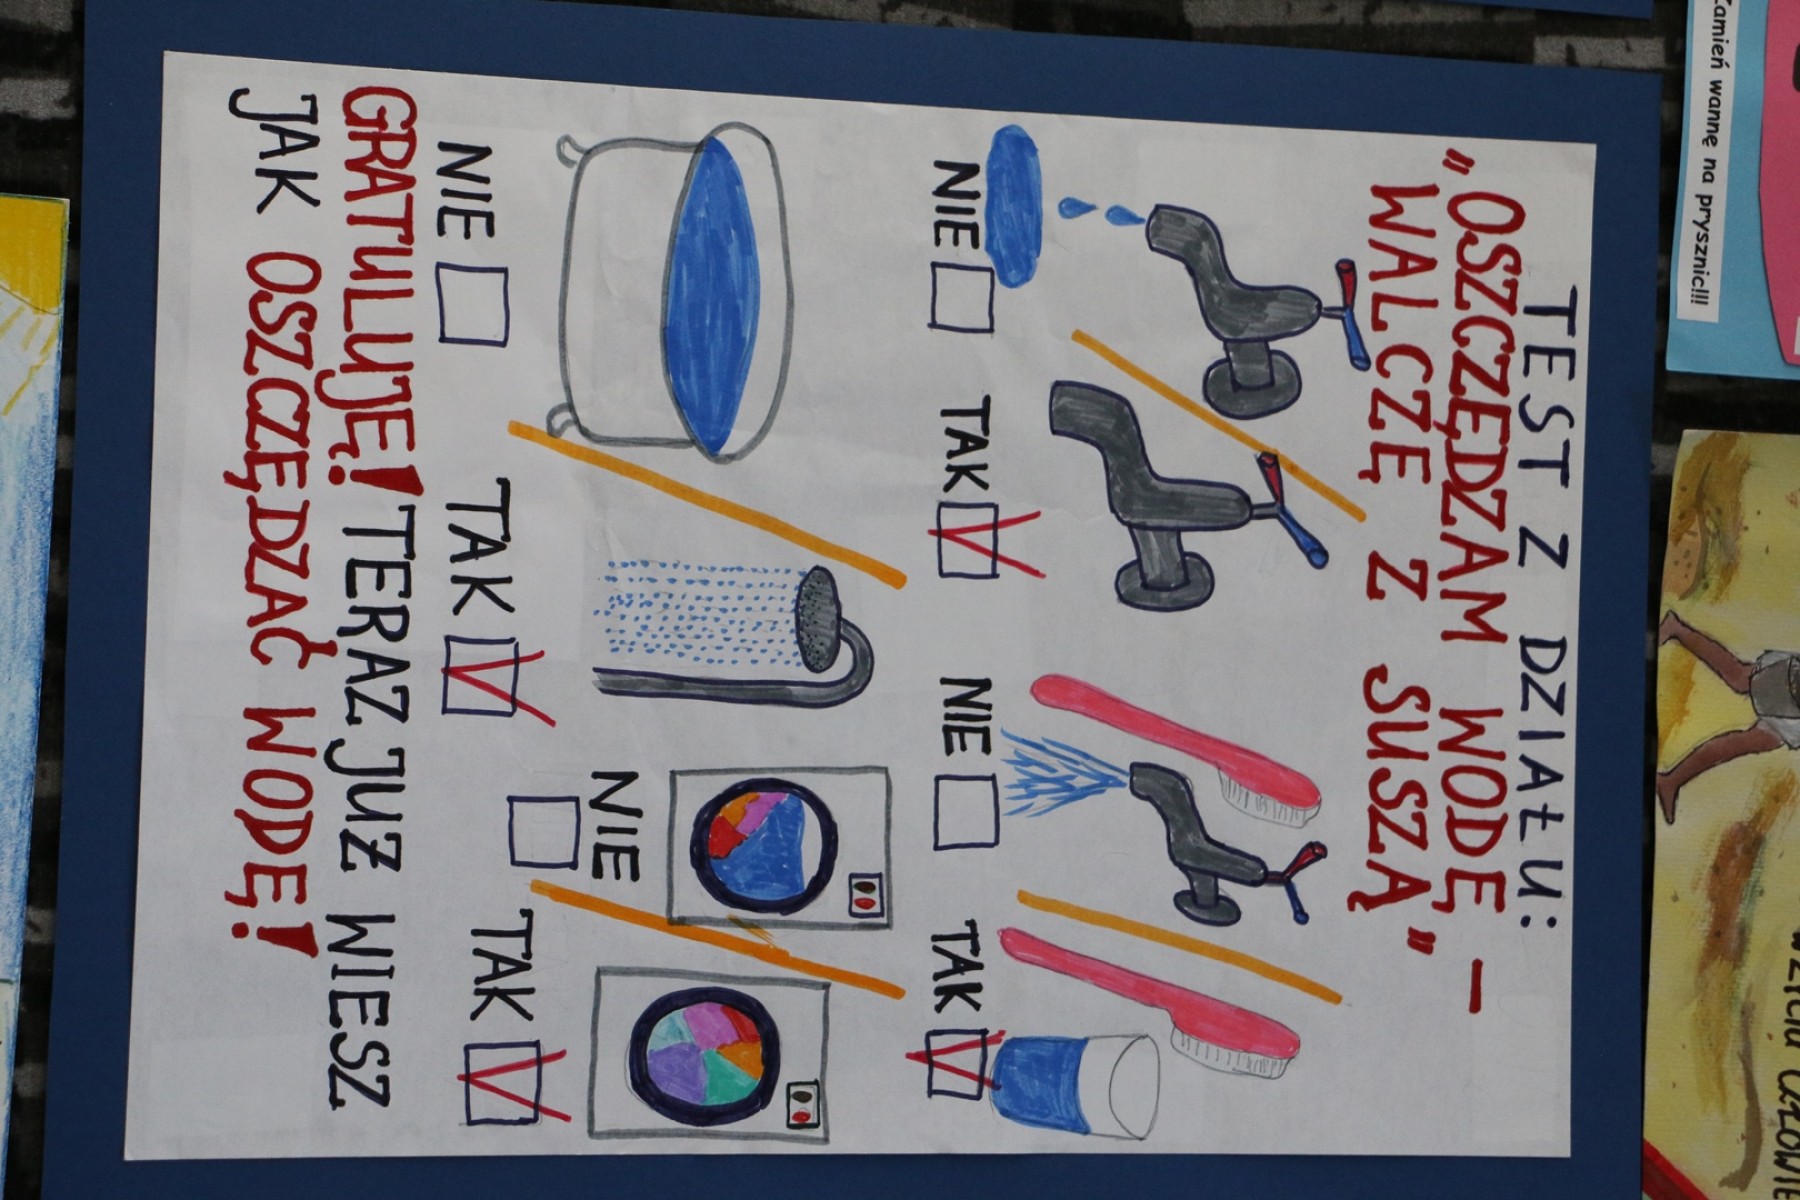 TEST Z DZIAŁU:
"OSZCZĘDZAM WODĘ –
WALCZĘ Z SUSZĄ"
NIE TAK NIE TAK
NIE TAK NIE TAK
GRATULUJĘ! TERAZ JUŻ WIESZ
JAK OSZCZĘDZAĆ WODĘ!
Zamień wannę na prysznic!!!